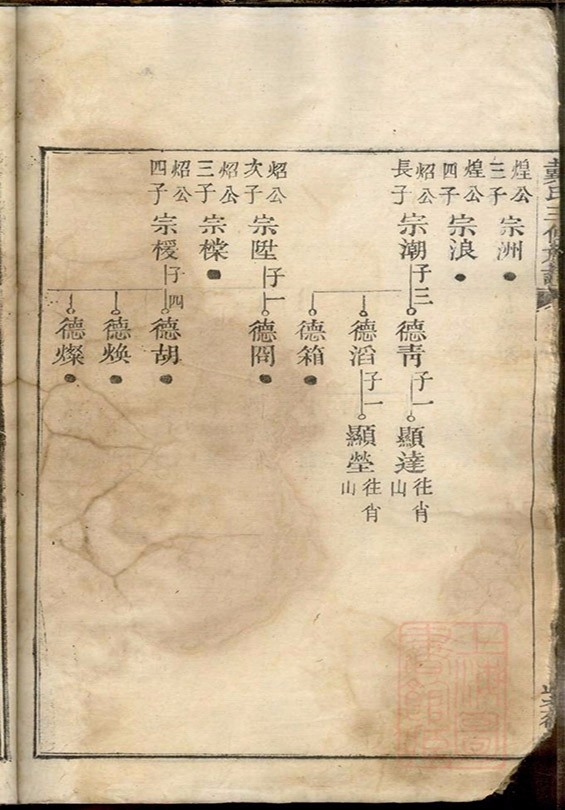 煌公三子 宗洲
煌公四子 宗浪
炤公長子 宗潮 子三
德青 子一
顯達 往肖山
德滔 子一
顯瑩 往肖山
德箱
炤公次子 宗陞 子一
德閤
炤公三子 宗檪
炤公四子 宗楥 子四
德胡
德煥
德燦